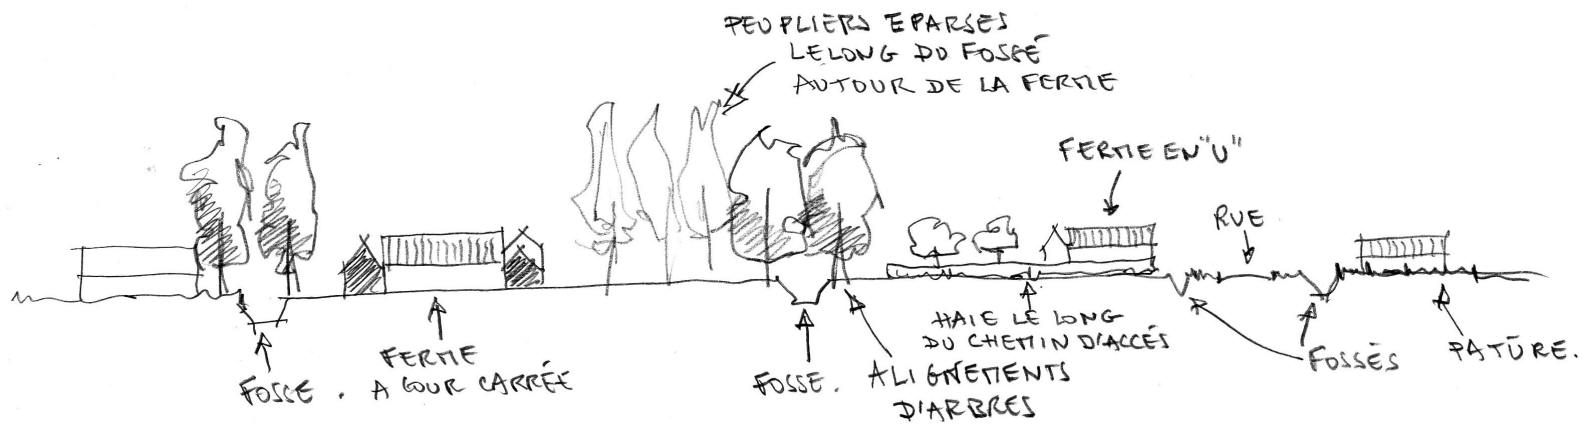 PEUPLIERS EPARSES
LE LONG DU FOSSÉ
AUTOUR DE LA FERME
FERME EN "U"
RUE
FOSSE.
FERME
A COUR CARRÉE
FOSSE.
ALIGNEMENTS
D'ARBRES
HAIE LE LONG
DU CHEMIN D'ACCÉS
FOSSÉS
PATÛRE.